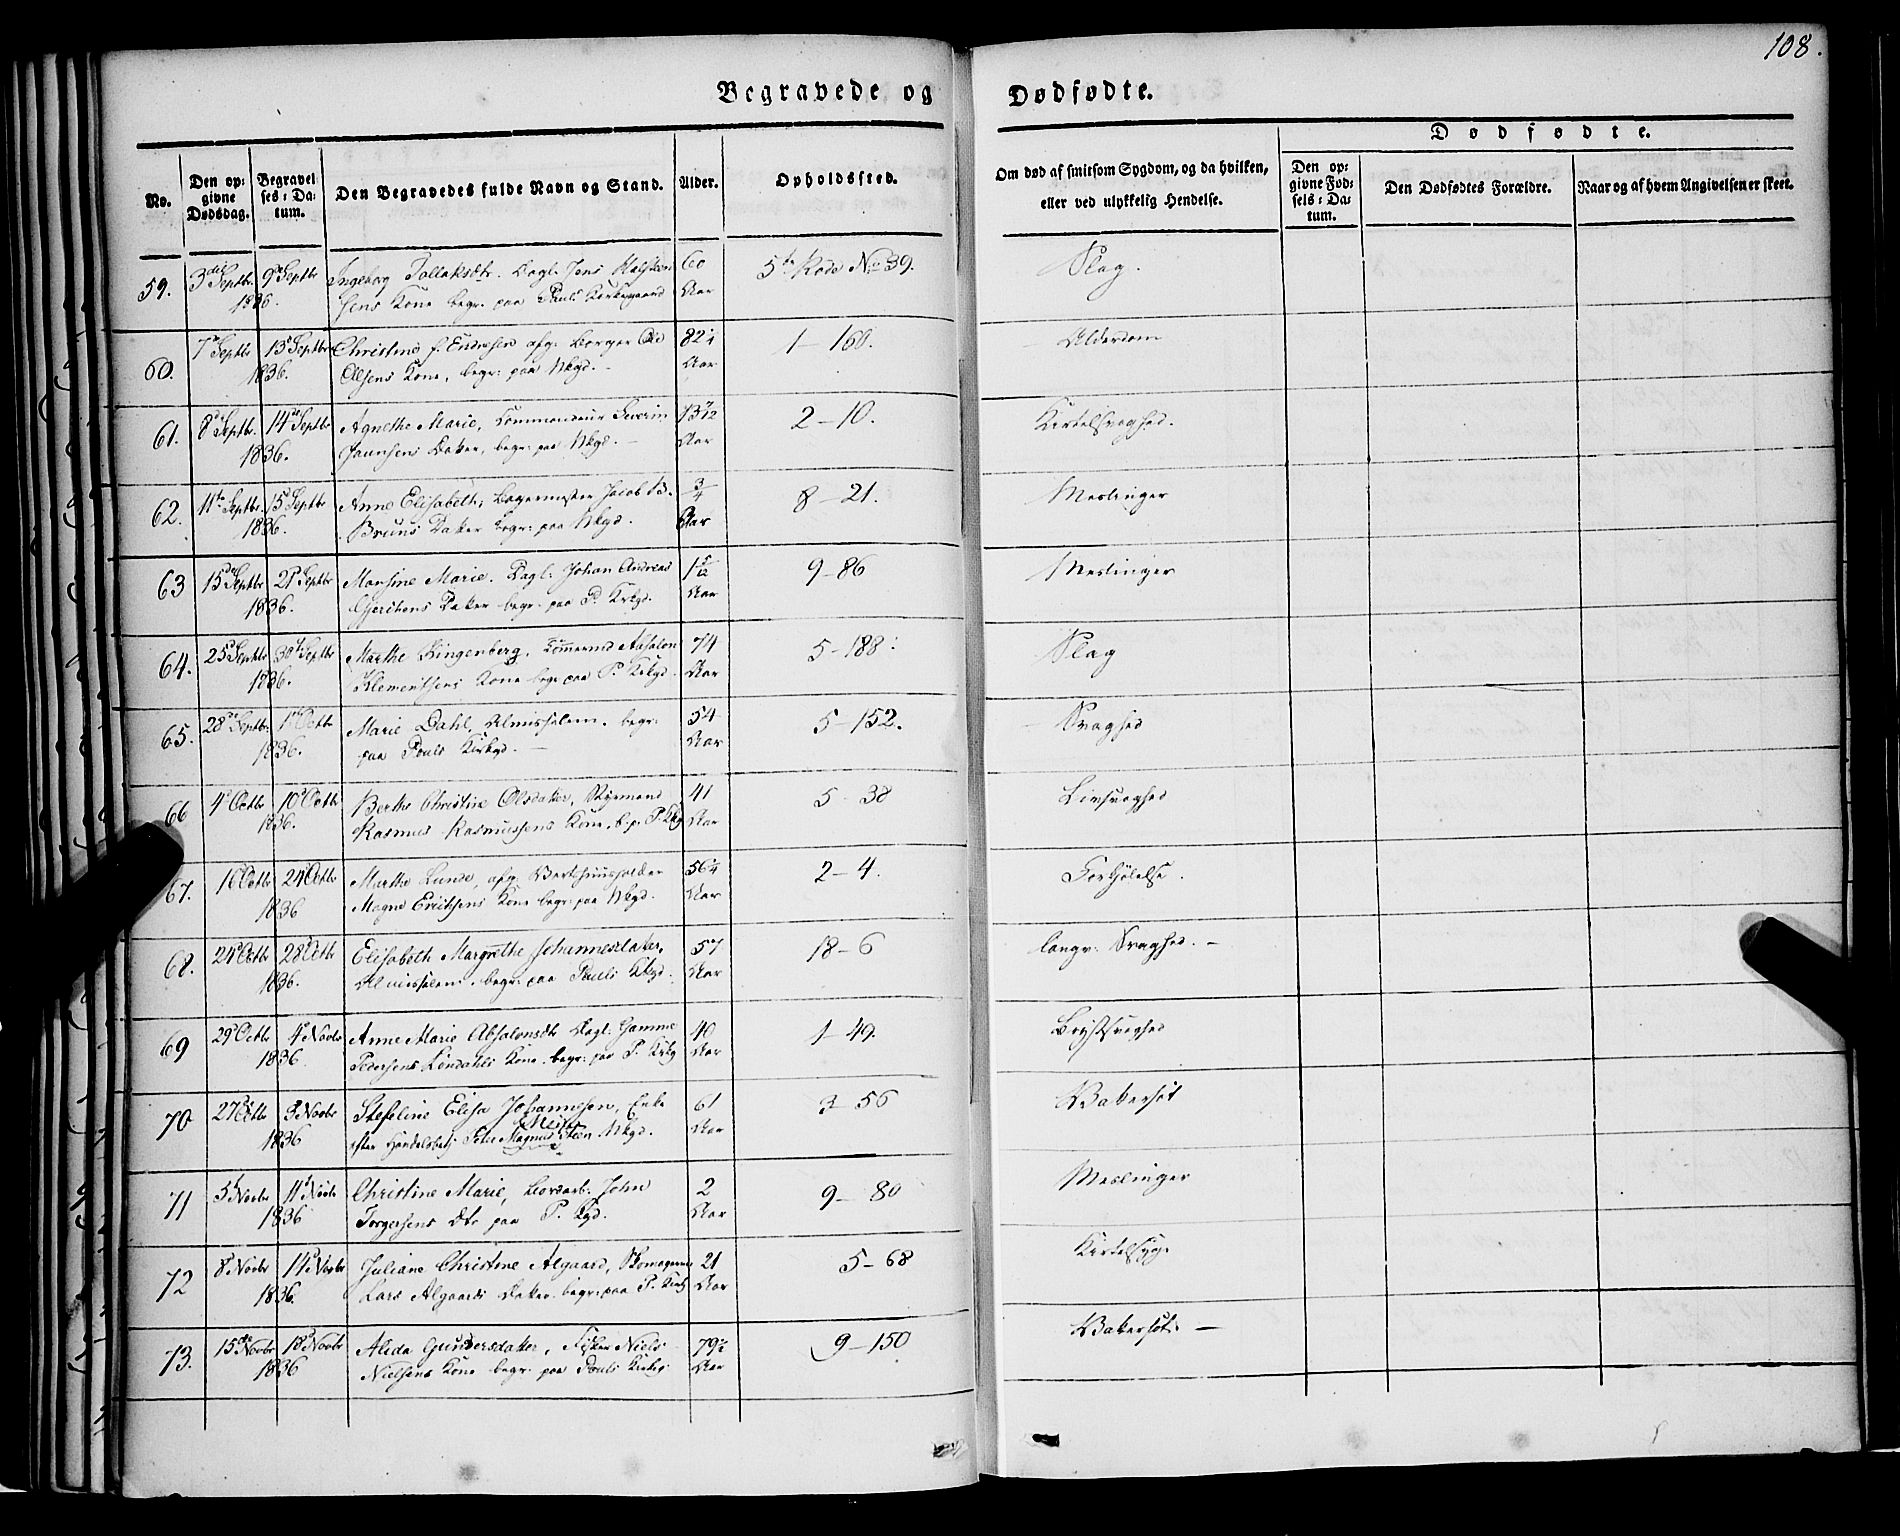 108.
Begravede og Dødfødte.
No. Den opgivne Dødsdag. Begravelses-Datum. Den Begravedes fulde Navn og Stand. Alder. Opholdssted. Om død af smitsom Sygdom, og da hvilken, eller ved ulykkelig Hendelse.
Dødfødte.
Den opgivne Fødsels-Datum. Den Dødfødtes Forældre. Naar og af hvem Angivelsen er skeet.
59. 3die Septbr. 9de Septbr Ingeborg Tollaksdtr. Dagl. Jens 60 5te Rode No 39. Slag.
1836. sens Kone begr. paa Pauls Kirkegaard Aar
60. 7de Septbr 13de Septbr Christine f. Endresen afg. Borger Ole 82½ 1-160. Alderdom
1836. Olsens Kone, begr: paa Nkgd. - Aar
61. 8de Septbr. 14de Septbr Agnethe Marie, Commandeur Severin 13 7/12 2-10. Kirtelsvaghed.
1836. Datter, begr: paa Nkgd. - Aar
62. 11te Septbr. 15de Septbr Anne Elisabeth, Bagermester Jacob B. 3/4 8-21. Meslinger
1836. Bruns Datter begr: paa Nkgd. Aar
63 15de Septbr 21de Septbr Marsine Marie. Dagl. Johan Andreas 1 5/12 9-86 Meslinger
1836. Gjertsens Datter begr: paa P. Kirkgd. Aar
64. 25de Septbr 30te Septbr Marthe Klingenberg, Tømmermd Absalon 74 5-188. Slag
1836. Klementsens Kone begr paa P. Kirkgd. Aar
65. 28de Septbr. 1ste Octbr Marie Dahl, Almisselem. begr: 54 5-152. Svaghed
1836. paa Pauls Kirkgd. - Aar
66 4de Octbr 10de Octbr Berthe Christine Olsdatter, Styrmand 41 5-38 Livsvaghed
1836. Rasmus Rasmussens Kone, b. p. P. Kkg Aar
67. 16de Octbr 24de Octbr Marthe Lunde, afg. Vertshuusholder 56¼ 2-4. Forkjølelse.
1836 Magne Erichsens Kone begr: paa Nkgd. Aar
68. 24de Octbr 28de Octbr Elisabeth Margrethe Johannesdatter, 57 18-6 langv: Svaghed. -
1836. Almisselem. begr: paa Pauls Kkgd. Aar
69 29de Octbr 4de Novbr Anne Marie Absalonsdtr Dagl. Gamme 40 1-49. Brystsvaghed
1836. Pedersens Kone. begr: paa P. Kirkg Aar
70 27de Octbr 3de Novbr Steffeline Elisa Johannesen, Enke 61 3-56 Vattersot
1836 efter Handelsbetj. Peter Magnus Steen Nkgd. Aar
71 5te Novbr 11te Novbr Christine Marie, Bordarb. John 2 9-80 Meslinger
1836 Torgersens Dtr paa P. Kgd. Aar
72 8de Novbr 14de Novbr Juliane Christine Algaard, Skomager 21 5-68 Kirtelsyge
1836. Lars Algaards Datter. begr: paa P. Kirkg Aar
73. 15de Novbr 18de Novbr Alida Gundersdatter, Fisker Niels 79½ 9-150 Vattersot. -
1836 Nielsens Kone begr. paa Pauls Kirkg. Aar